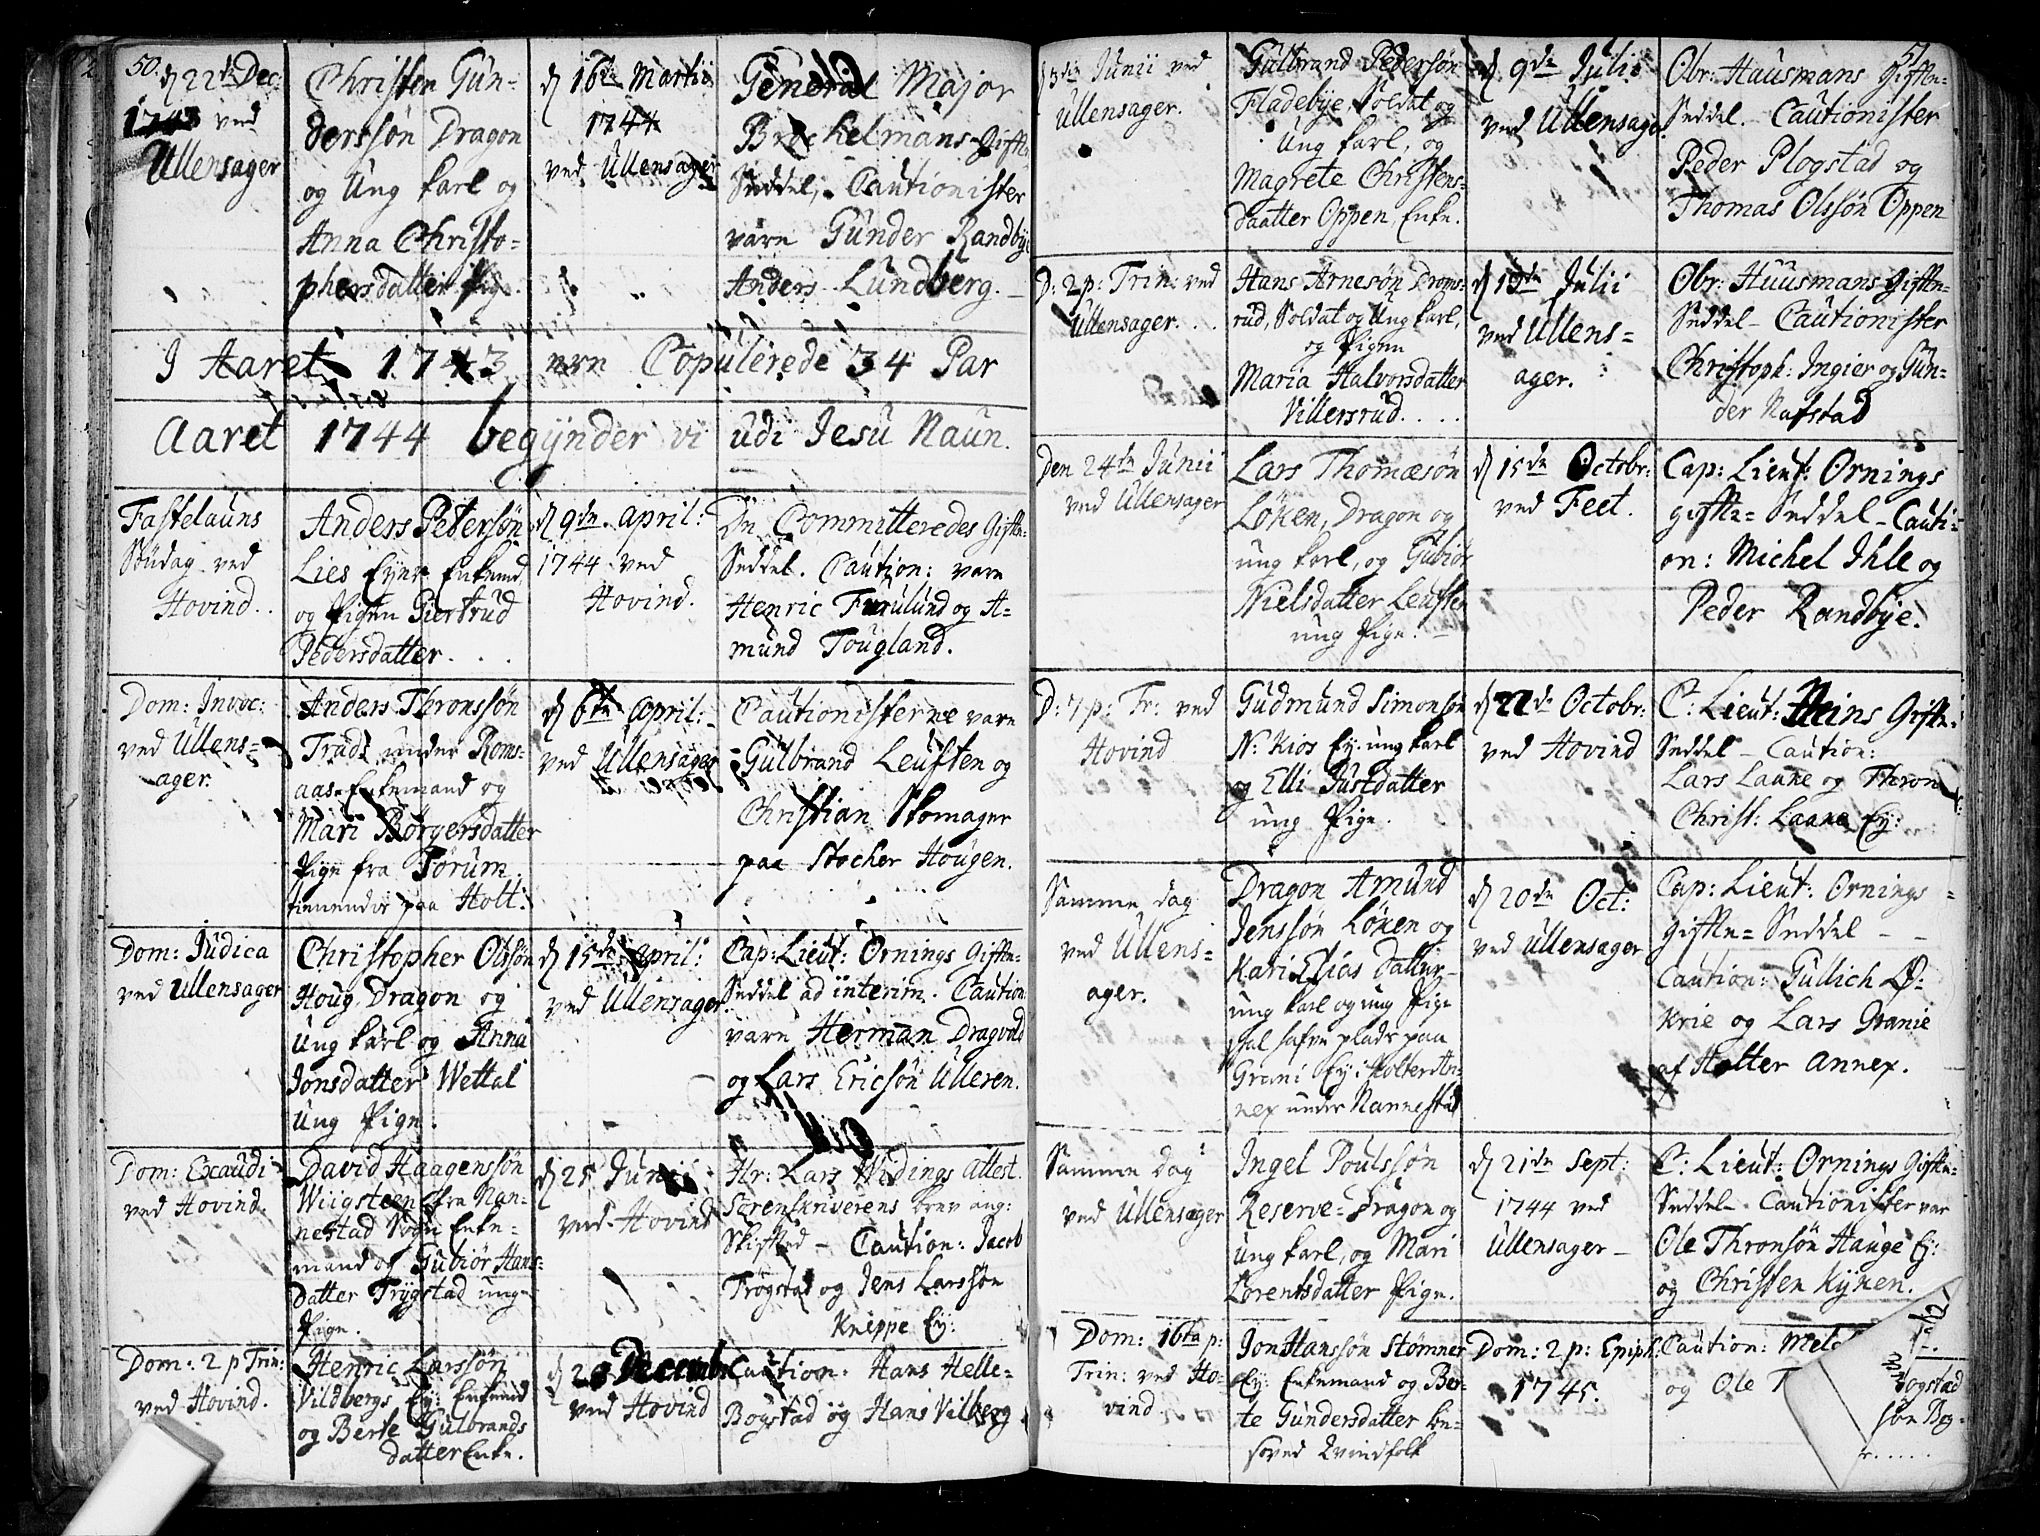 50.
d 22de Dec:
1743 ved
Ullensager
Christen Gun-
dersøn Dragon
og Ung karl og
Anna Christo-
phersdatter Pige.
d 16de Martii
1744
ved Ullensager
General Major
Brockelmans Gifte
Seddel, Cautionister
vare Gunder Randbye
Anders Lundberg.
I Aaret 1743 ere Copulerede 34 Par
Aaret 1744 begynder vi udi Jesu Naun.
Fastelauns
Søndag ved
Hovind.
Anders Petersøn
Lies Eyer Enkemd
og Pigen Giertrud
Pedersdatter.
d 9de April:
1744 ved
Hovind.
De Committeredes Gifte-
Seddel. Caution: vare
Henric Furulund og A-
mund Tougland.
Dom: Invoc:
ved Ullens-
ager.
Anders Thronssøn
Trads under Roms-
aas Enkemand og
Mari Børgersdatter
Pige fra Torum
tienende paa Holt:
d 6te April:
ved Ullensager
Cautionisterne vare
Gulbrand Leusten og
Christian Skomager
paa Stocker Hougen.
Dom: Judica
ved Ullensager
Christopher Olssøn
Houg, Dragon og
Ung karl og Anna
Jonsdatter Wettal
Ung Pige.
d 15de April:
ved Ullensager
Cap: Lieut: Ornings Gifte-
Seddel ad interim. Caution:
vare Herman Dragvold
og Lars Ericsøn Ulleren.
Dom: Exaudi
ved Hovind.
David Haagenssøn
Wiigsteen fra Nan-
nestad Sogn Enke-
mand og Gubiør Hans-
datter Trygstad ung
Pige.
d 25 Junii
ved Hovind
Hr: Lars Widings Attest.
Sorenskriverens brev ang:
Skifted — Caution: Jacob
Trøgstad og Jens Larssøn
Kneppe Ey:
Dom: 2 p Trin:
ved Hovind.
Henric Larssøn
Vildbergs Ey: Enkemd
og Berte Gulbrands
datter Enke.
d 28 Decembr
ved Hovind
Caution: Hans Helle-
Bogstad og Hans Vilberg
51.
d 3die Junii ved
Ullensager.
Gulbrand Pedersøn
Fladebye, Soldat og
Ung karl, og
Magrete Christens-
daatter Oppen, Enke.
d 9de Julii
ved Ullensager
Obr: Hausmans Gifte-
Seddel. Cautionister
Peder Plogstad og
Thomas Olssøn Oppen
D: 2 p: Trin: ved
Ullensager.
Hans Arnesøn Droms-
rud, Soldat og Ung karl,
og Pigen
Maria Halvorsdatter
Villersrud.
d 19de Julii
ved Ullens-
ager.
Obr: Huusmans Gifte-
Seddel — Cautionister
Christoph: Ingier og Gun-
der Nafstad
Den 24de Junii
ved Ullensager
Lars Thomæsøn
Løken, Dragon og
ung karl, og Gubiør
Nielsdatter Leusten
ung Pige.
d 15de Octobr:
ved Feet.
Cap: Lieut: Ornings
Gifte-Seddel — Cauti-
on: Michel Ihle og
Peder Randbye.
D: 7 p: Tr: ved
Hovind
Gudmund Simonsøn
N: Kios Ey: ung karl
og Elli Justdatter
ung Pige.
d 22de Octobr:
ved Hovind
C: Lieut: Heins Gifte-
Seddel — Caution:
Lars Laake og Thron
Christ: Laake Ey:
Samme dag
ved Ullens-
ager.
Dragon Amund
Jenssøn Løken og
Kari Elias datter
ung karl og ung Pige
skal hafve plads paa
Grani Ey i Holter An-
nex under Nannestad
d 20de Oct:
ved Ullensager
Cap: Lieut: Ornings
Gifte-Seddel —
Caution: Gullich Ø-
krie og Lars Granie
af Holter Annex.
Samme dag
ved Ullensager
Ingel Poulssøn
Reserve-Dragon og
Ung karl, og Mari
Lorentsdatter Pige.
d 21de Sept:
1744 ved
Ullensager —
C: Lieut: Ornings Gifte-
Seddel — Cautionister var
Ole Thronsøn Hauge Ey:
og Christen Kynen.
Dom: 16ta p:
Trin: ved Ho-
vind.
Jon Hanssøn Stømner
Ey: Enkemand og Ber-
te Gundersdatter be-
sovet Qvindfolk
Dom: 2 p: Epiph.
1745.
Caution: Melc
og Ole T
ogstad
søn Bog-
r.....